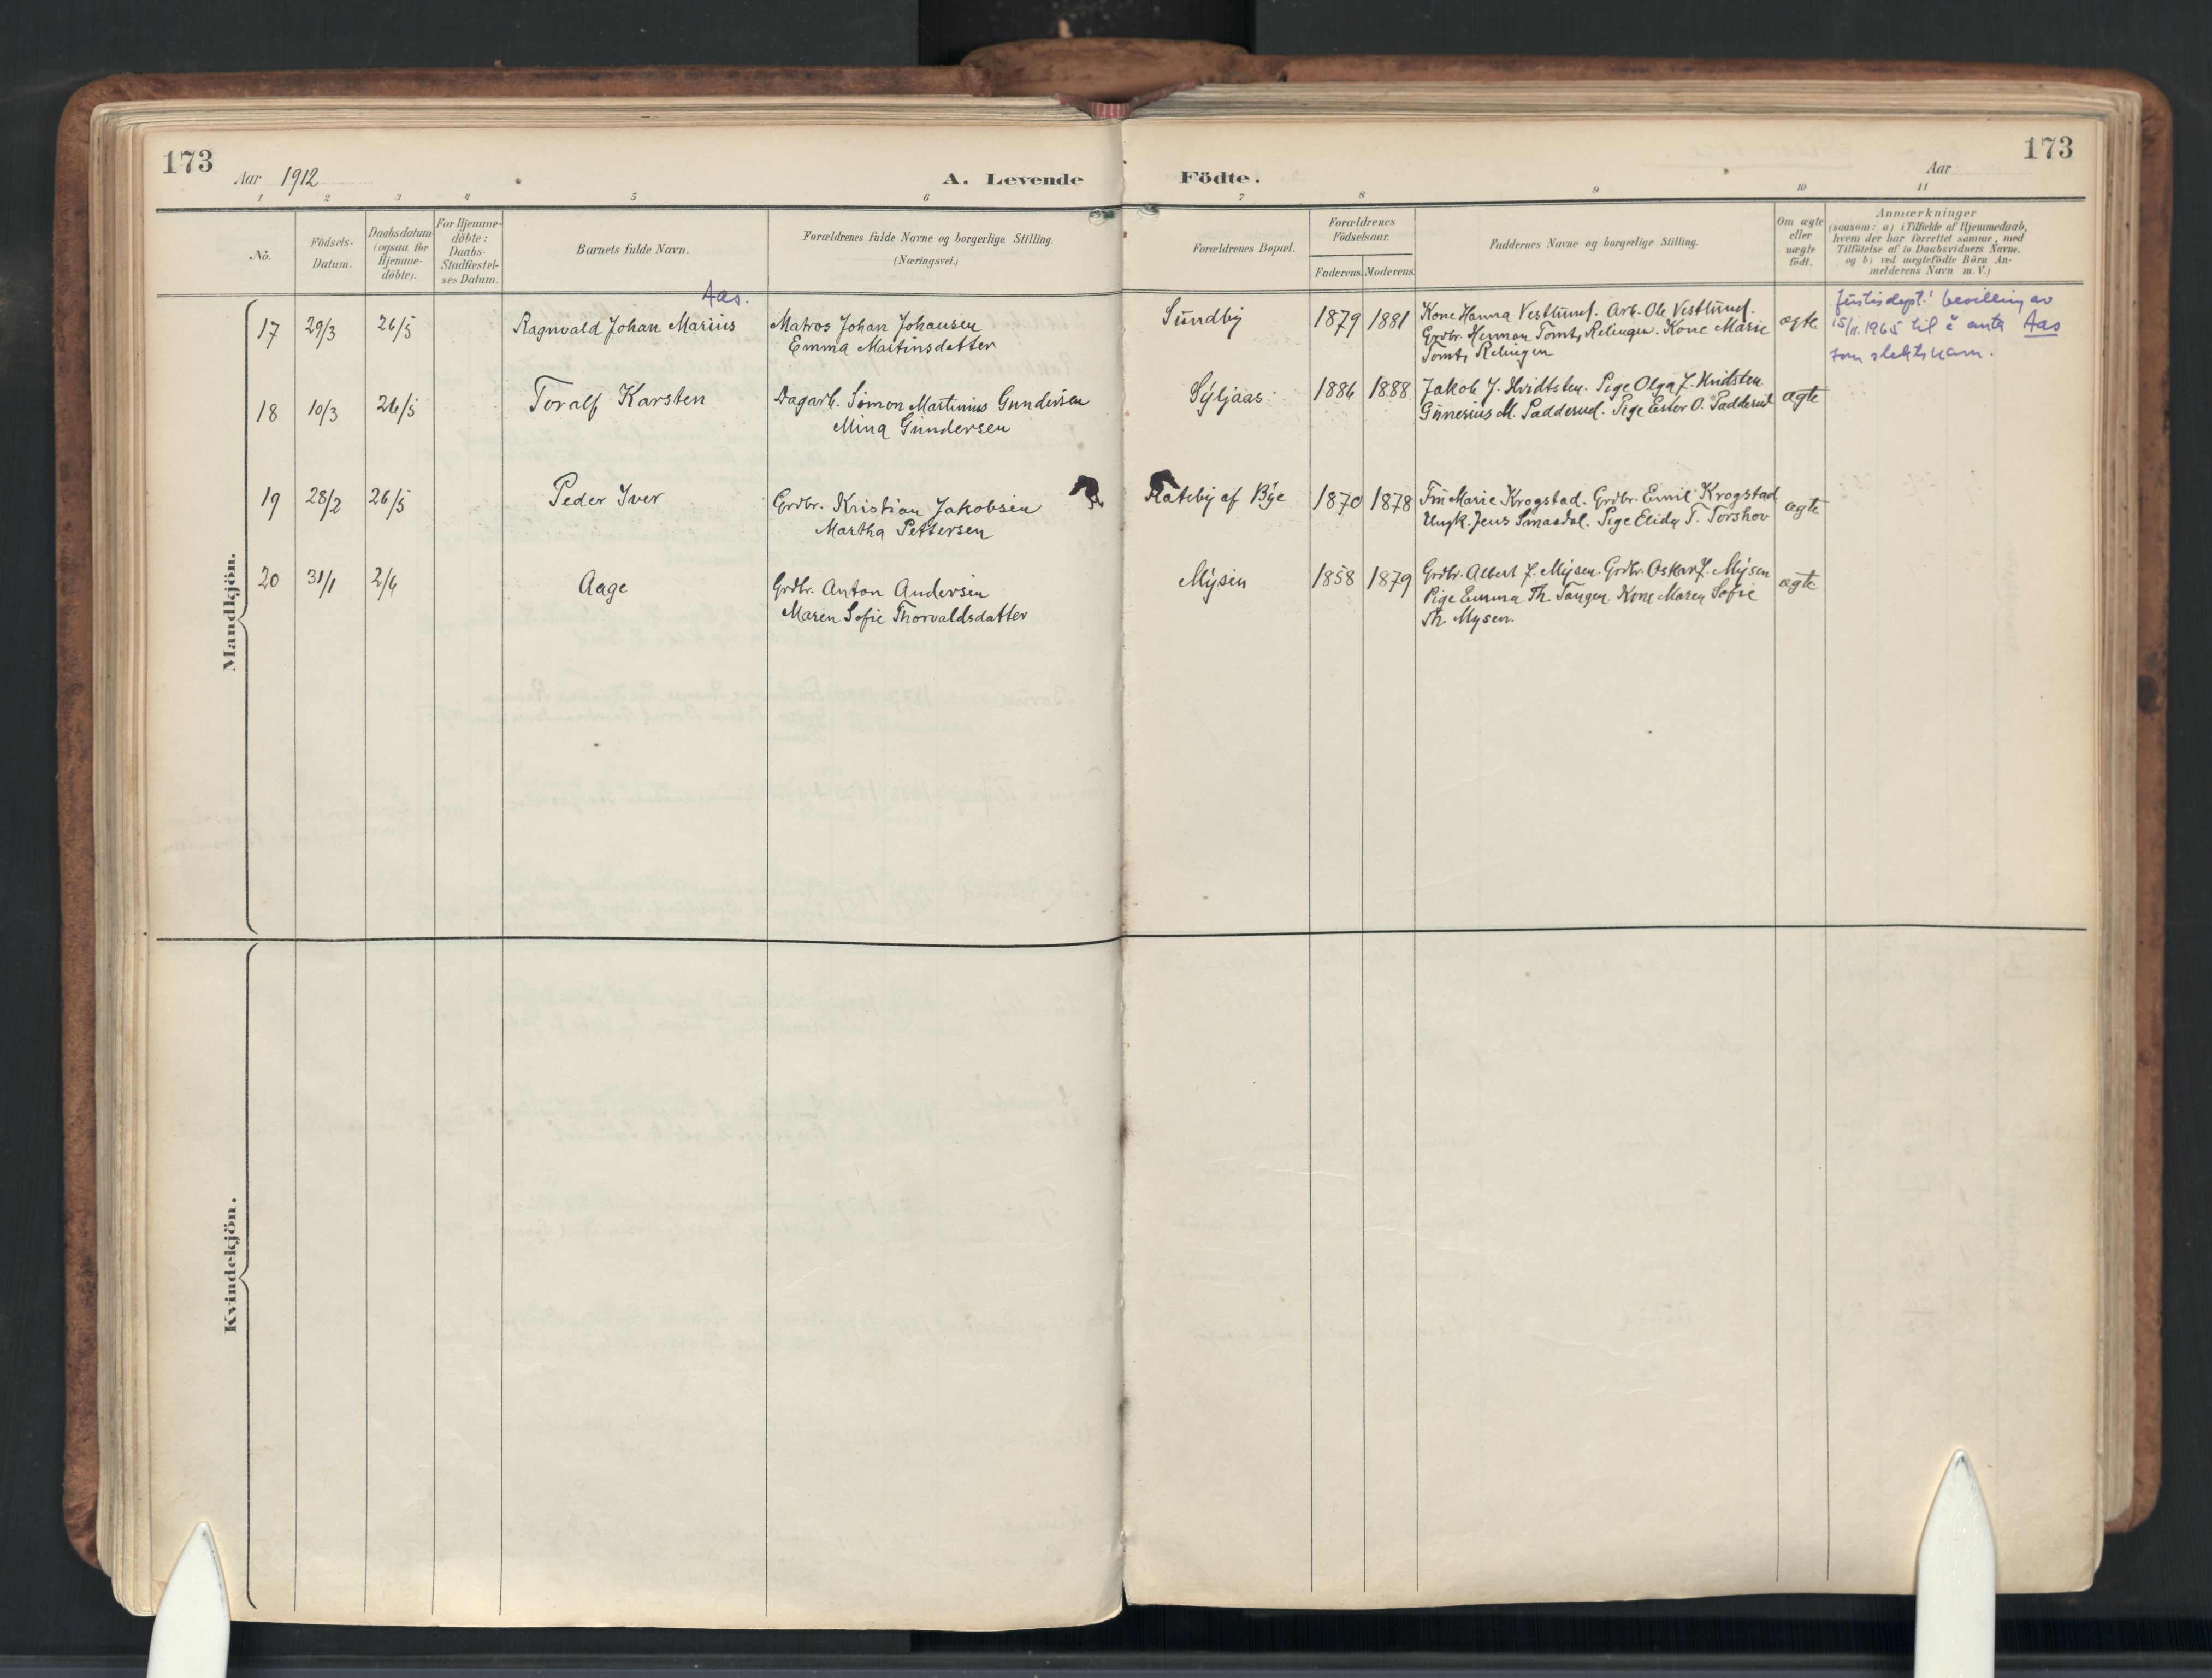 173
Aar 1912
A. Levende Födte.
Aar
173
1 2 3 4 5 6 7 8 9 10 11
No.
Födsels-
Datum.
Daabsdatum
(ogsaa for
Hjemme-
döbte).
For Hjemme-
döbte:
Daabs-
Stadfæstel-
ses Datum.
Barnets fulde Navn.
Forældrenes fulde Navne og borgerlige Stilling.
(Næringsvei.)
Forældrenes Bopæl.
Forældrenes
Födselsaar.
Faderens. Moderens.
Faddernes Navne og borgerlige Stilling.
Om ægte
eller
uægte
födt.
Anmærkninger
(saasom: a) i Tilfælde af Hjemmedaab,
hvem der har forrettet samme, med
Tilföielse af to Daabsvidners Navne,
og b) ved uægtefödte Börn An-
melderens Navn m. V.)
Mandkjön.
Aas.
17 29/3 26/5 Ragnvald Johan Marius
Matros Johan Johansen
Emma Martinsdatter
Sundby 1879 1881
Kone Hanna Vestlund. Arb. Ole Vestlund.
Grdbr. Herman Tomt, Relingen. Kone Marie
Tomt, Relingen
ægte
Justisdept.' bevilling av
15/11.1965 til å anta Aas
som slektsnavn.
18 10/3 26/5 Toralf Karsten
Dagarb. Simon Martinius Gundersen
Mina Gundersen
Syljaas 1886 1888
Jakob J. Hvidtsten. Pige Olga J. Hvidsten
Gunerius M. Padderud. Pige Ester O. Padderud
ægte
19 28/2 26/5 Peder Iver
Grdbr. Kristian Jakobsen
Martha Pettersen
Flateby af Bye 1870 1878
Fru Marie Krogstad. Grdbr. Emil Krogstad
Ungk. Jens Smaadal. Pige Elida T. Torshov
ægte
20 31/1 2/6 Aage
Grdbr. Anton Andersen
Maren Sofie Thorvaldsdatter
Mysen 1858 1879
Grdbr. Albert J. Mysen. Grdbr. Oskar J. Mysen
Pige Emma Th. Tangen. Kone Maren Sofie
Th. Mysen.
ægte
Kvindekjön.